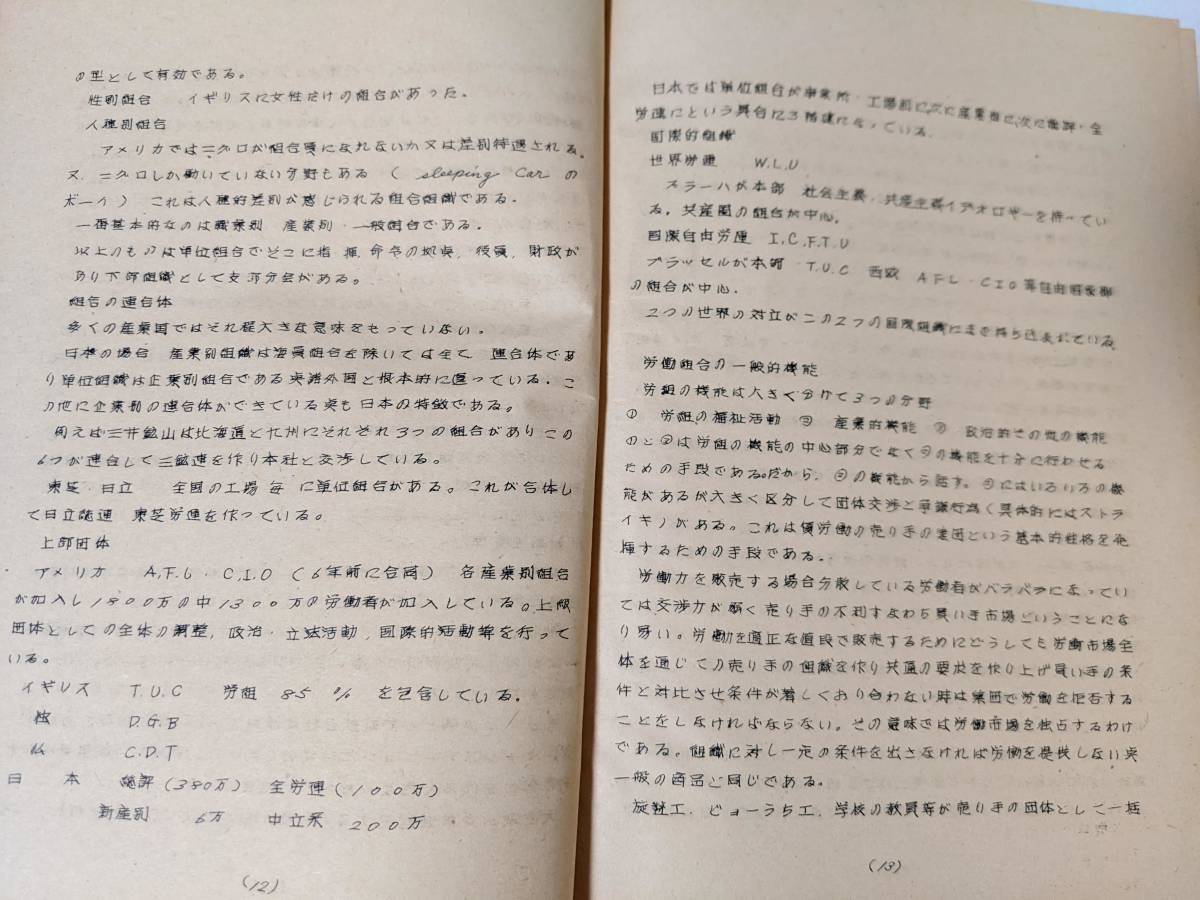 の型として有効である。
性別組合 イギリスに女性だけの組合があった。
人種別組合
アメリカではニグロが組合員になれないか又は差別待遇される。
又、ニグロしか働いていない分野もある(sleeping carの
ボーイ) これは人種的差別が感じられる組合組織である。
一番基本的なのは職業別 産業別・一般組合である。
以上のものは単位組合でそこに指揮命令の拠点、役員、財政が
あり下部組織として支部分会がある。
組合の連合体
多くの産業国ではそれ程大きな意味をもっていない。
日本の場合 産業別組織は海員組合を除いては全て 連合体であ
り単位組織は企業別組合である点諸外国と根本的に違っている。こ
の他に企業別の連合体ができている点も日本の特徴である。
例えば三井鉱山は北海道と九州にそれぞれ3つの組合がありこの
6つが連合して三鉱連を作り本社と交渉している。
東芝・日立 全国の工場毎に単位組合がある。これが合体し
て日立総連 東芝労連を作っている。
上部団体
アメリカ A.F.L・C.I.O(6年前に合同) 各産業別組合
が加入し1800万の中1300万の労働者が加入している。上級
団体としての全体の調整、政治・立法活動、国際的活動等を行って
いる。
イギリス T.U.C 労組 85% を包含している。
独 D.G.B
仏 C.D.T
日本 総評(380万) 全労連(100万)
新産別 6万 中立系 200万
(12)
日本では単位組合が事業所・工場別に次に産業別に次に総評・全
労連にという具合に3階建になっている。
国際的組織
世界労連 W.L.U
プラーハが本部 社会主義・共産主義イデオロギーを持ってい
る。共産圏の組合が中心。
国際自由労連 I.C.F.T.U
ブラッセルが本部 T.U.C 西欧 AFL・CIO等自由国家群
の組合が中心。
2つの世界の対立がこの2つの国際組織にまで持ち込まれている。
労働組合の一般的機能
労組の機能は大きく分けて3つの分野
① 労組の福祉活動 ② 産業的機能 ③ 政治的その他の機能
①と③は労組の機能の中心部分でなく②の機能を十分に行わせる
ための手段である。だから、②の機能から話す。②にはいろいろの機
能があるが大きく区分して団体交渉と争議行為(具体的にはストラ
イキ)がある。これは賃労働の売り手の集団という基本的性格を発
揮するための手段である。
労働力を販売する場合分散している労働者がバラバラになってい
ては交渉力が弱く売り手の不利すなわち買い手市場ということにな
り易い。労働を適正な値段で販売するためにどうしても労働市場全
体を通じての売り手の組織を作り共通の要求を作り上げ買い手の条
件と対比させ条件が著しくおり合わない時は集団で労働を拒否する
ことをしなければならない。その意味では労働市場を独占するわけ
である。組織に対し一定の条件を出さなければ労働を提供しない点
一般の商品と同じである。
旋盤工、ビョーうち工、学校の教員等が売り手の団体として一括
(13)